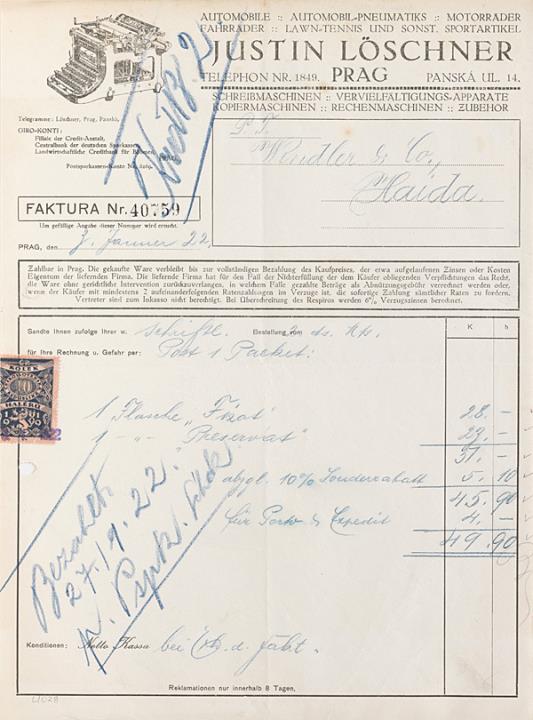 AUTOMOBILE :: AUTOMOBIL-PNEUMATIKS :: MOTORRÄDER
FAHRRÄDER :: LAWN-TENNIS UND SONST. SPORTARTIKEL
JUSTIN LÖSCHNER
TELEPHON NR. 1849. PRAG PANSKÁ UL. 14.
SCHREIBMASCHINEN :: VERVIELFÄLTIGUNGS-APPARATE
KOPIERMASCHINEN :: RECHENMASCHINEN :: ZUBEHÖR
Telegramme: Löschner, Prag, Panská.
GIRO-KONTI:
Filiale der Credit-Anstalt,
Centralbank der deutschen Sparkassen,
Landwirtschaftliche Creditbank für Böhmen,
PRAG.
Postsparkassen-Konto No.
P. T.
Windler & Co,
Haida.
FAKTURA Nr. 40759
Um gefällige Angabe dieser Nummer wird ersucht.
PRAG, den 7. Jänner 22.
Zahlbar in Prag. Die gekaufte Ware verbleibt bis zur vollständigen Bezahlung des Kaufpreises, der etwa aufgelaufenen Zinsen oder Kosten
Eigentum der liefernden Firma. Die liefernde Firma hat für den Fall der Nichterfüllung der dem Käufer obliegenden Verpflichtungen das Recht,
die Ware ohne gerichtliche Intervention zurückzuverlangen, in welchem Falle gezahlte Beträge als Abnützungsgebühr verrechnet werden oder,
wenn der Käufer mit mindestens 2 aufeinanderfolgenden Ratenzahlungen im Verzuge ist, die sofortige Zahlung sämtlicher Raten zu fordern.
Vertreter sind zum Inkasso nicht berechtigt. Bei Überschreitung des Respiros werden 6% Verzugszinsen berechnet.
Sandte Ihnen zufolge Ihrer w. schriftl. Bestellung vom 2. ds. Mts. K h
für Ihre Rechnung u. Gefahr per: Post 1 Packet:
KOLEK
HALÉŘŮ
1 Flasche "Fixat" 28. –
1 –"– "Preservat" 23. –
51. –
abzgl. 10% Sonderrabatt 5. 10
45. 90
für Porto & Expedit 4. –
49. 90
Bezahlt
27./9. 22.
p. Pspk. Schek
Konditionen: Netto Kassa bei d.
Reklamationen nur innerhalb 8 Tagen.